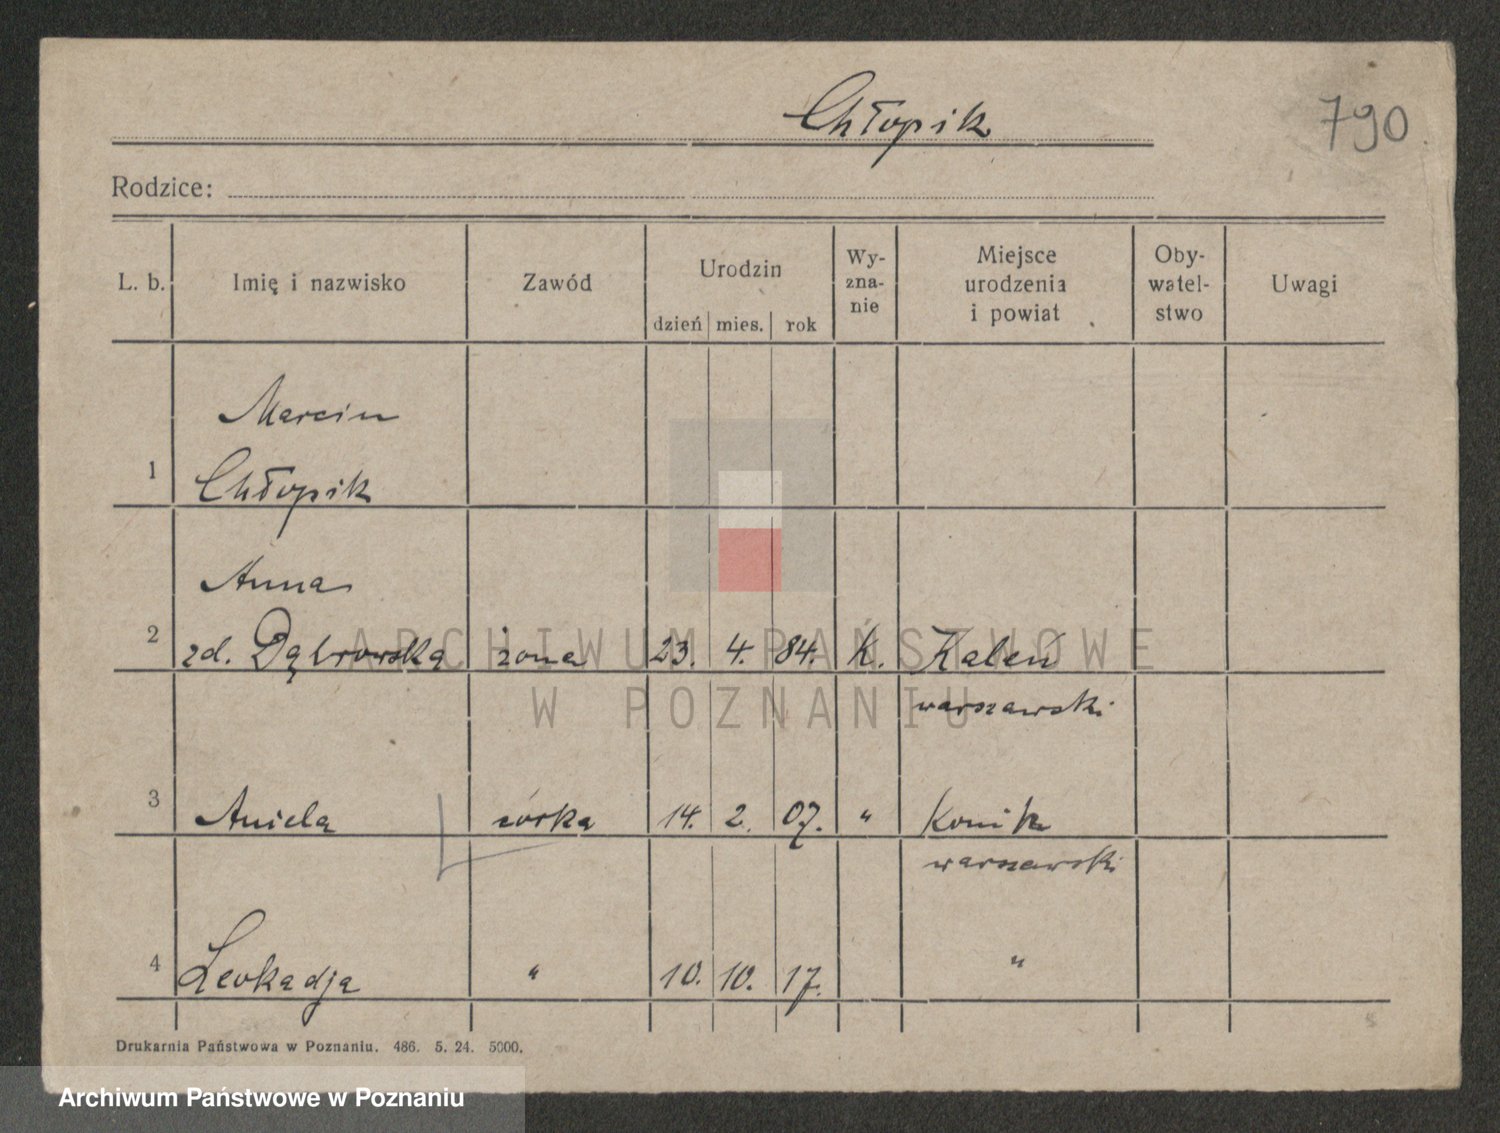 Chłopik
790
Rodzice:
L. b.
Imię i nazwisko
Zawód
Urodzin
dzień mies. rok
Wy-
zna-
nie
Miejsce
urodzenia
i powiat
Oby-
watel-
stwo
Uwagi
Marcin
1 Chłopik
Anna
2 zd. Dąbrowska żona 23. 4. 84. K. Kaleń
warszawski
3 Aniela córka 14. 2. 07. " Konik
warszawski
4 Leokadja " 10. 10. 17. "
ARCHIWUM PAŃSTWOWE
W POZNANIU
Drukarnia Państwowa w Poznaniu. 486. 5. 24. 5000.
Archiwum Państwowe w Poznaniu